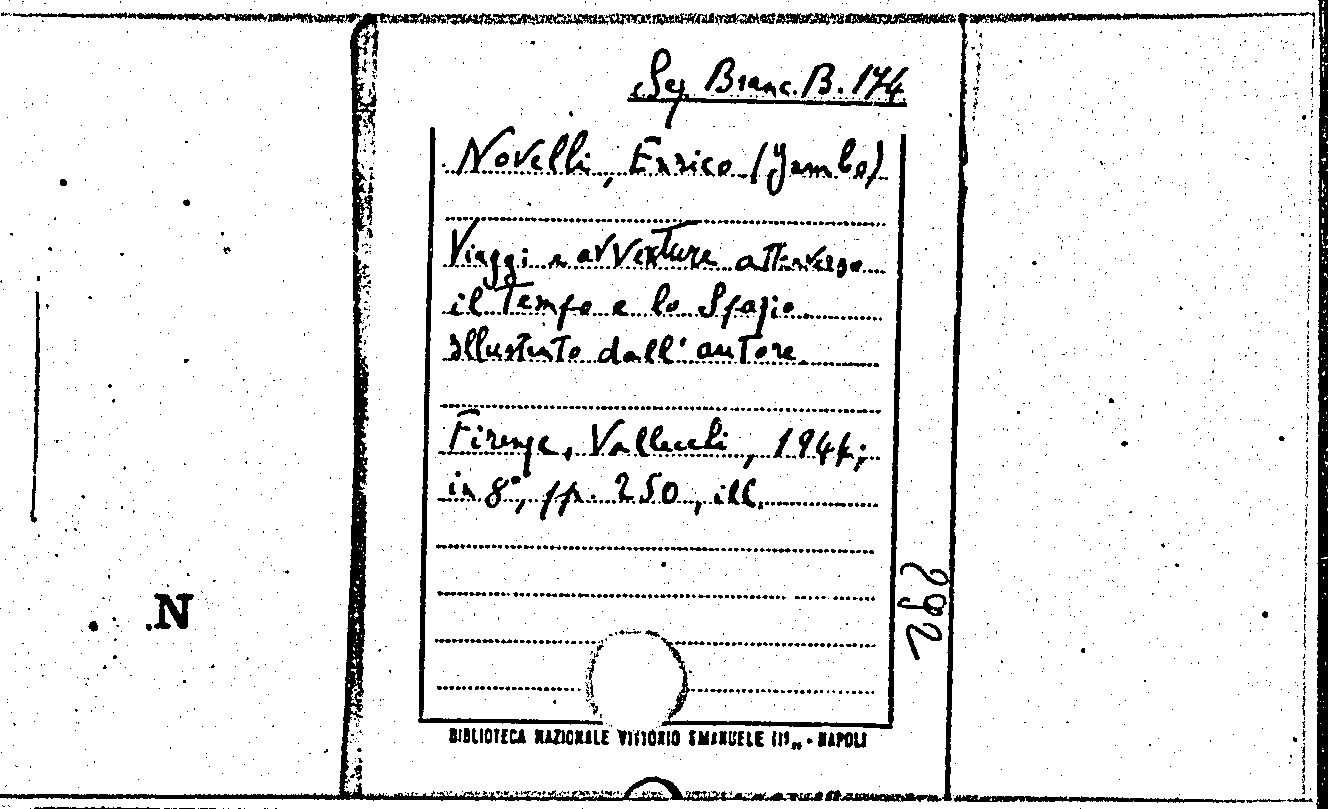 Seq Branc. B. 174
Novelli, Enrico (Yambo)
Viaggi e avventure attraverso
il Tempo e lo Spazio
illustrato dall'autore.
Firenze, Vallecchi, 1944;
in 8°, pp. 250, ill.
N
BIBLIOTECA NAZIONALE VITTORIO EMANUELE III„ - NAPOLI